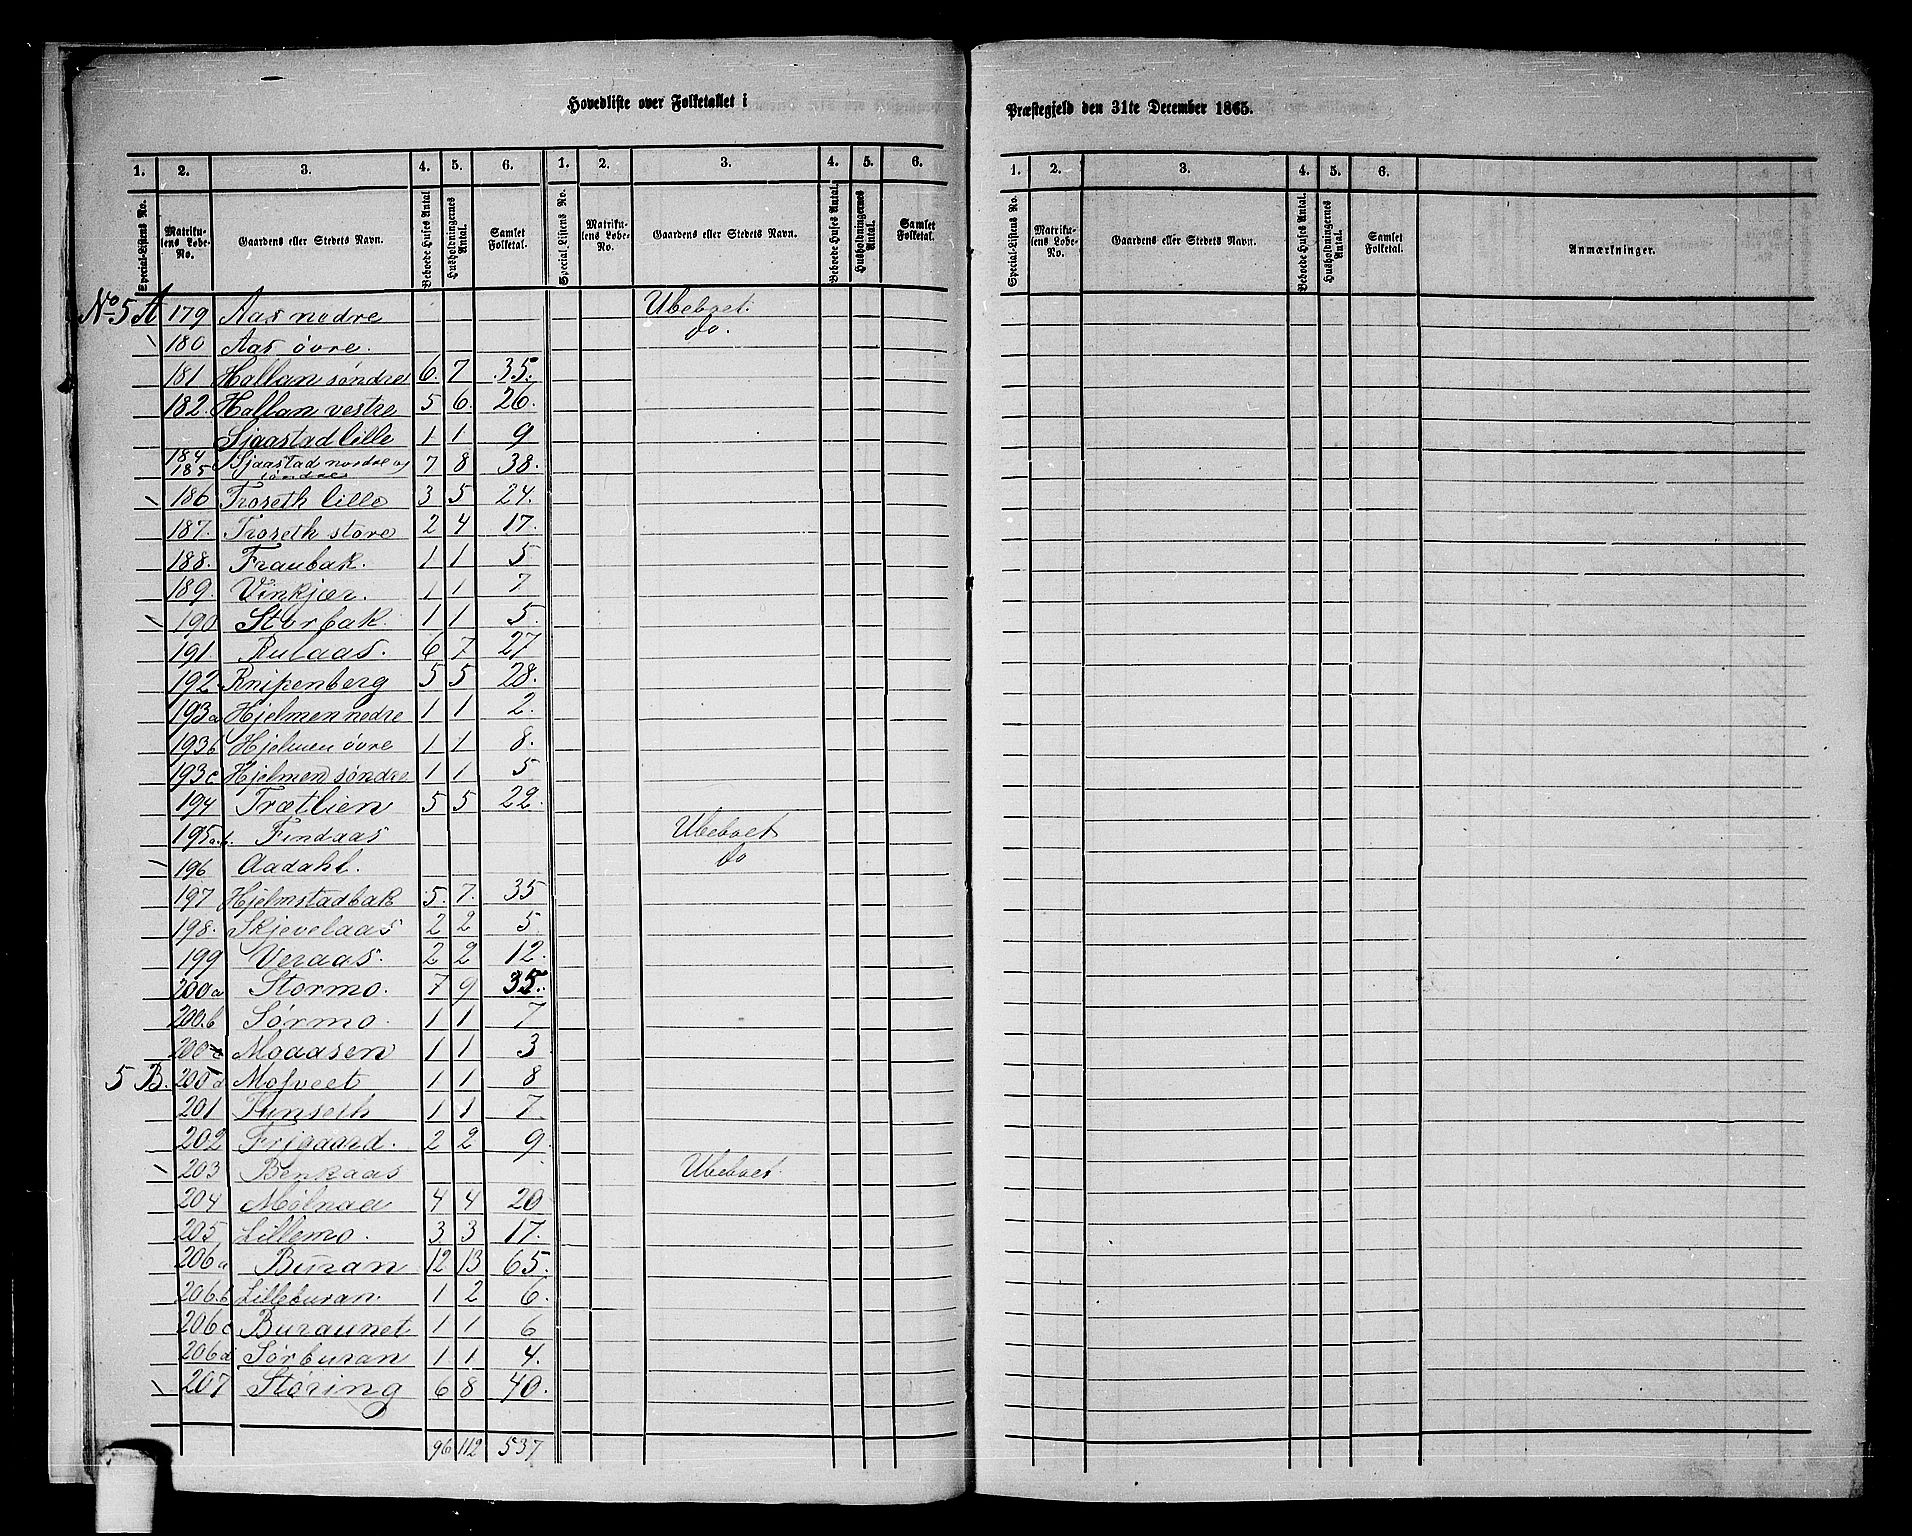 Hovedliste over Folketallet i Præstegjeld den 31te December 1865.
1. 2. 3. 4. 5. 6. 1. 2. 3. 4. 5. 6. 1. 2. 3. 4. 5. 6.
Special-Listens No. Matrikulens Løbe-No. Gaardens eller Stedets Navn. Beboede Huses Antal. Husholdningernes Antal. Samlet Folketal. Special-Listens No. Matrikulens Løbe-No. Gaardens eller Stedets Navn. Beboede Huses Antal. Husholdningernes Antal. Samlet Folketal. Special-Listens No. Matrikulens Løbe-No. Gaardens eller Stedets Navn. Beboede Huses Antal. Husholdningernes Antal. Samlet Folketal. Anmærkninger.
No 5 A 179 Aas nedre Ubeboet.
180 Aas øvre. do.
181 Hallan søndre 6. 7 35.
182. Hallan vestre 5 6. 26.
Sjaastad lille 1 1 9
184 185 Sjaastad nordre og søndre 7 8 38.
186 Troseth lille 3 5 24.
187. Troseth store 2 4 17.
188. Fraubak. 1 1 5
189. Vinkjær. 1 1 7.
190 Storbak. 1 1 5.
191. Rulaas. 6 7 27
192 Knipenberg 5 5 28.
193a Hjelmen nedre 1 1 2.
193b Hjelmen øvre 1 1 8.
193c Hjelmen søndre 1 1 5
194 Trætlien 5 5 22.
195a.b. Findaas Ubeboet
196 Aadahl. do
197 Hjelmstadbak 5. 7. 35
198. Skjevelaas 2 2 5.
199 Veraas. 2 2 12.
200a Stormo. 7 9 35.
200.b Sørmo. 1 1 7
200c Moaasen 1 1 3
5 B. 200d Mosveet 1 1 8
201 Finseth 1 1 7
202 Frigaard. 2 2 9.
203 Benkaas Ubeboet.
204 Mølnaa 4 4 20
205 Lillemo. 3. 3 17.
206a Buran 12 13 65.
206.b Lilleburan. 1 2 6.
206c Buraunet 1 1 6
206d Sørburan 1 1 4.
207 Støring 6 8 40.
96 112 537